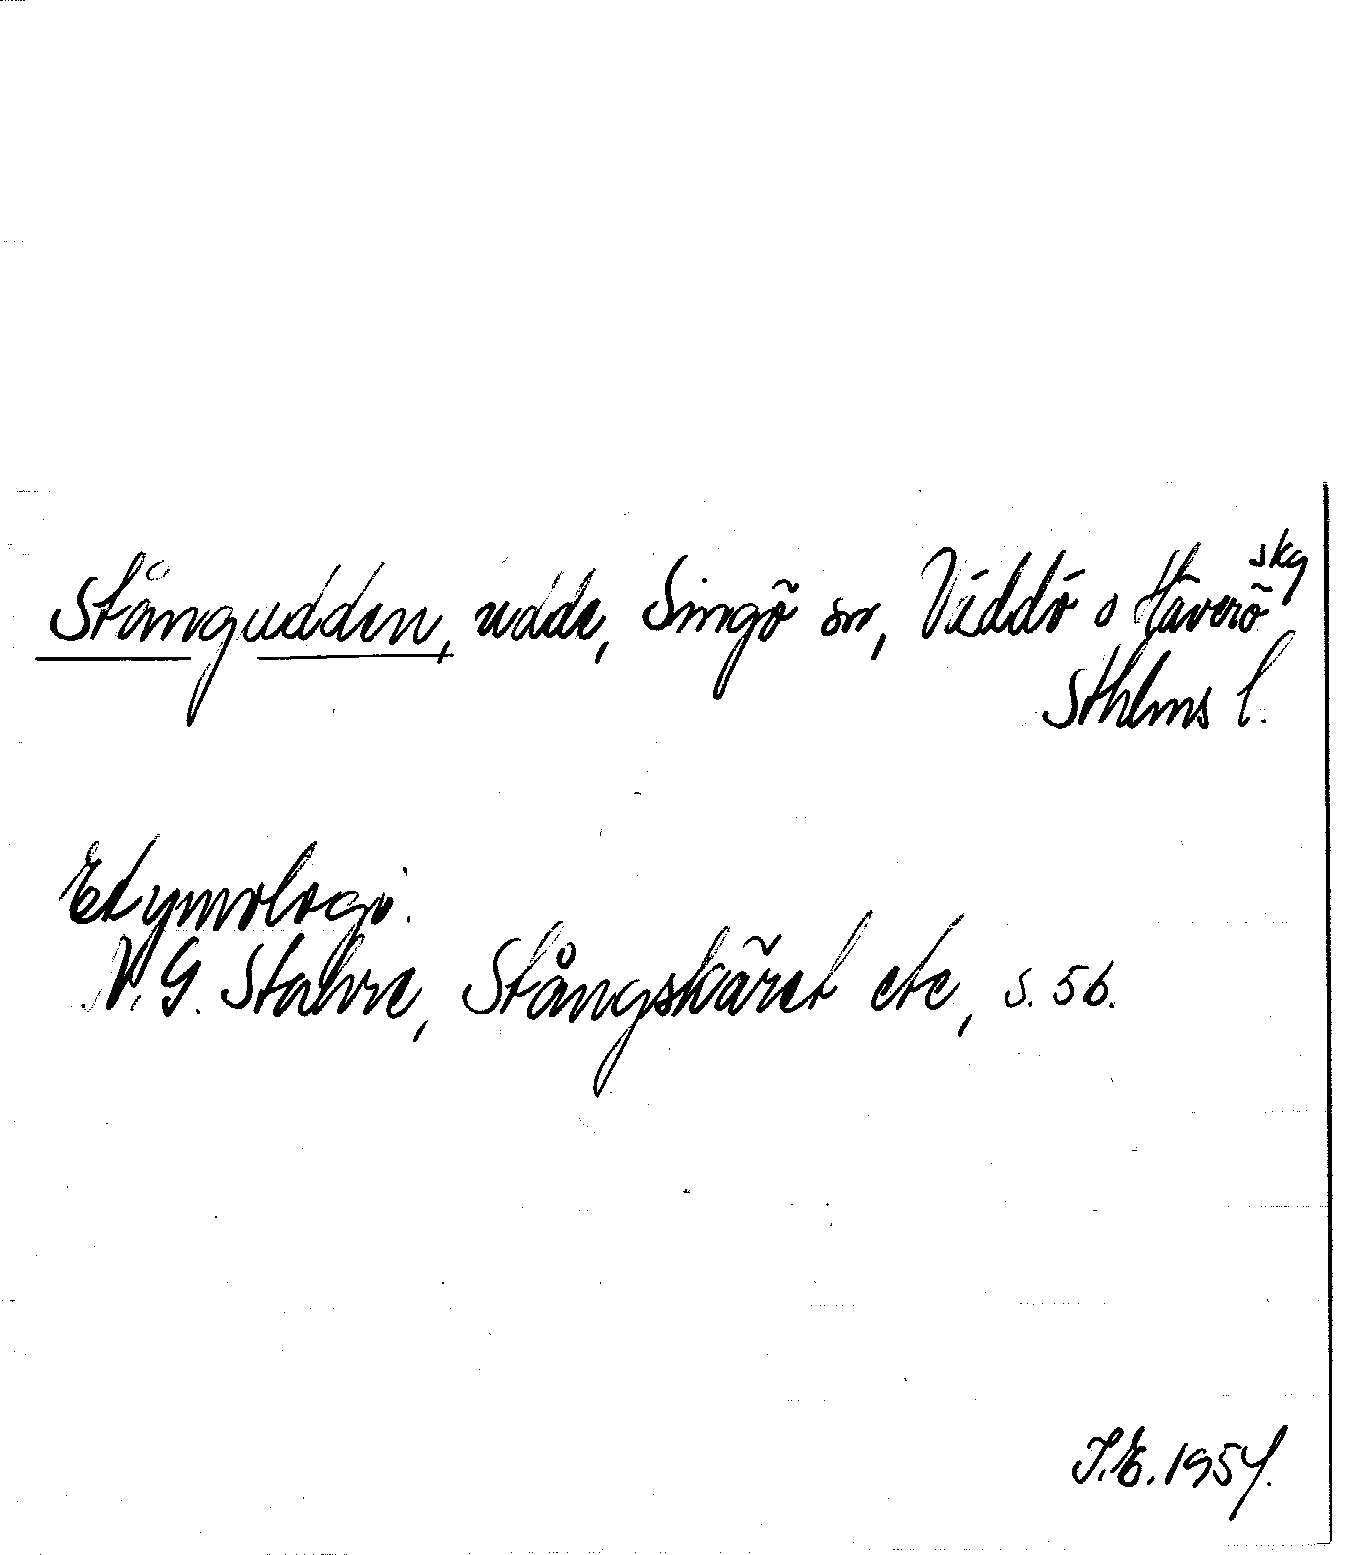 Stångudden, udde, Singö sn, Väddö o Häverö skg
Sthlms l.
Etymologi.
N.G. Stahre, Stångskäret etc, s. 56.
I.E. 1954.